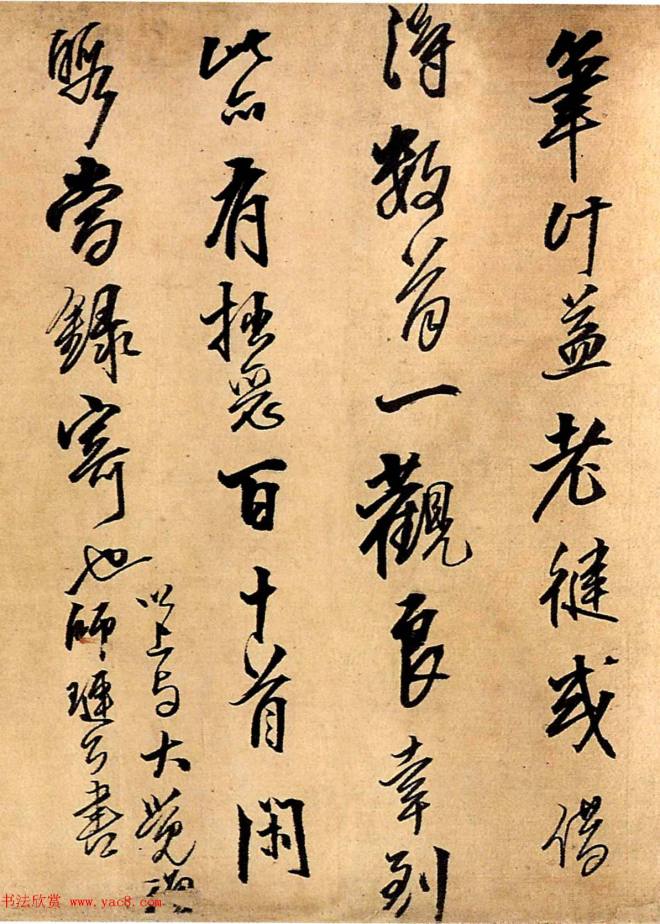 筆計益老健或借
得數首一觀良幸到
此亦有拙惡百十首閑
暇當錄寄也
以上與大覺禪
師璉公書
书法欣赏 www.yac8.com